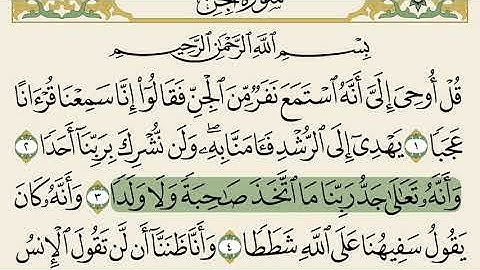 سورة الجن
بِسْمِ ٱللَّهِ ٱلرَّحْمَٰنِ ٱلرَّحِيمِ
قُلْ أُوحِىَ إِلَىَّ أَنَّهُ ٱسْتَمَعَ نَفَرٌ مِّنَ ٱلْجِنِّ فَقَالُوٓا۟ إِنَّا سَمِعْنَا قُرْءَانًا
عَجَبًا ١ يَهْدِىٓ إِلَى ٱلرُّشْدِ فَـَٔامَنَّا بِهِۦ وَلَن نُّشْرِكَ بِرَبِّنَآ أَحَدًا ٢
وَأَنَّهُۥ تَعَٰلَىٰ جَدُّ رَبِّنَا مَا ٱتَّخَذَ صَٰحِبَةً وَلَا وَلَدًا ٣ وَأَنَّهُۥ كَانَ
يَقُولُ سَفِيهُنَا عَلَى ٱللَّهِ شَطَطًا ٤ وَأَنَّا ظَنَنَّآ أَن لَّن تَقُولَ ٱلْإِنسُ